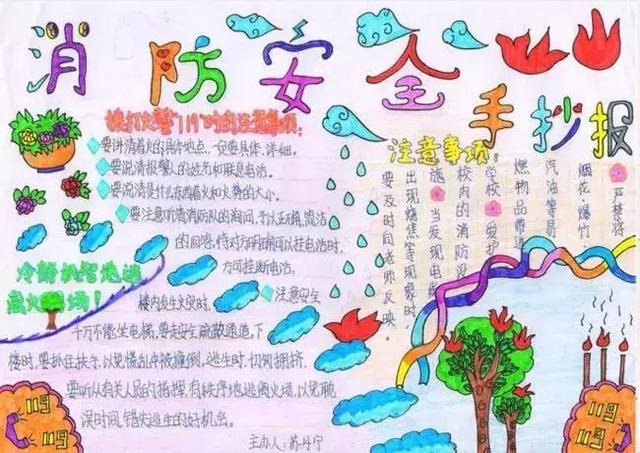 消防安全手抄报
拨打火警"119"时的注意事项:
要讲清着火的具体地点,一定要具体、详细。
要说清报警人的姓名和联系电话。
要说清是什么东西着火和火势的大小。
要注意听清消防队的询问,予以正确,简洁
的回答,待对方明确可以挂电话时,
方可挂断电话。
冷静机智地逃
离火场!
注意安全
楼内发生火灾时,
千万不能坐电梯,要走安全疏散通道。下
楼时,要抓住扶手,以免慌乱中被撞倒,逃生时,切勿拥挤,
要听从有关人员的指挥,有秩序地逃离火场,以免耽
误时间,错失逃生的好机会。
主办人:苏丹宁
注意事项:
严禁将
烟花、爆竹、
汽油等易
燃物品带进
学校。爱护
校内的消防设
施。当发现电器
出现烧焦等现象时
要及时向老师反映。
119
119
119
119